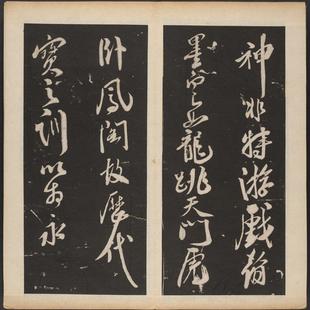 神非特游戲翰
墨龍跳天門虎
卧鳳閣故歷代
寶之訓以為永